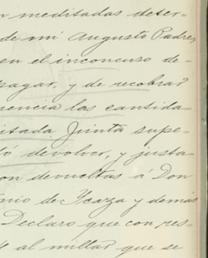 n meditadas deter-
de mi Augusto Padre,
en el inconcuso de-
pagar, y de recobrar
encia las cantida-
itada Junta supe-
ó devolver, y justa-
on devueltas á Don
nio de Icaza y demás
Declaro que con res-
al millar que se